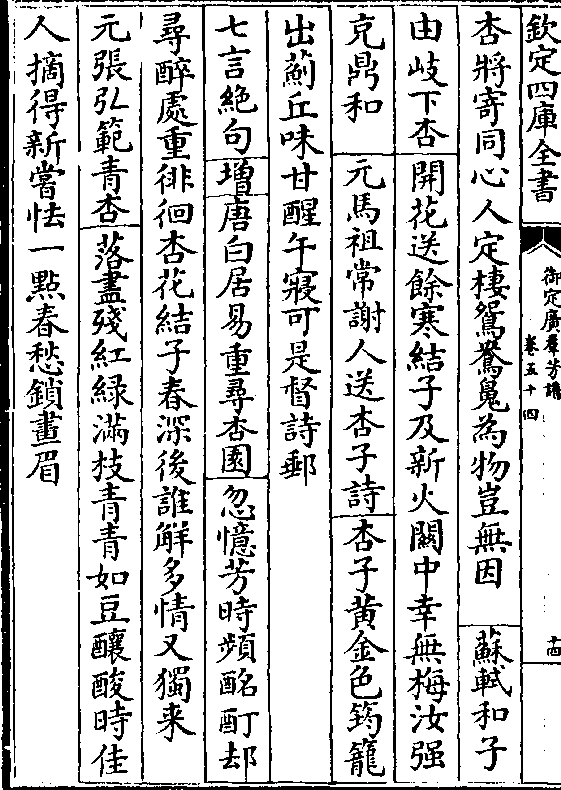 欽定四庫全書
御定廣羣芳譜
卷五十四
十四
杏將寄同心人定棲鴛鴦㲋為物豈無因　蘇軾和子
由岐下杏　開花送餘寒結子及新火關中幸無梅汝强
充鼎和　元馬祖常謝人送杏子詩　杏子黃金色筠籠
出薊丘味甘醒午寢可是督詩郵
七言絶句　增　唐白居易重尋杏園　忽憶芳時頻酩酊却
尋醉處重徘徊杏花結子春深後誰解多情又獨来
元張弘範青杏　落盡殘紅綠滿枝青青如豆釀酸時佳
人摘得新嘗怯一點春愁鎖畫眉